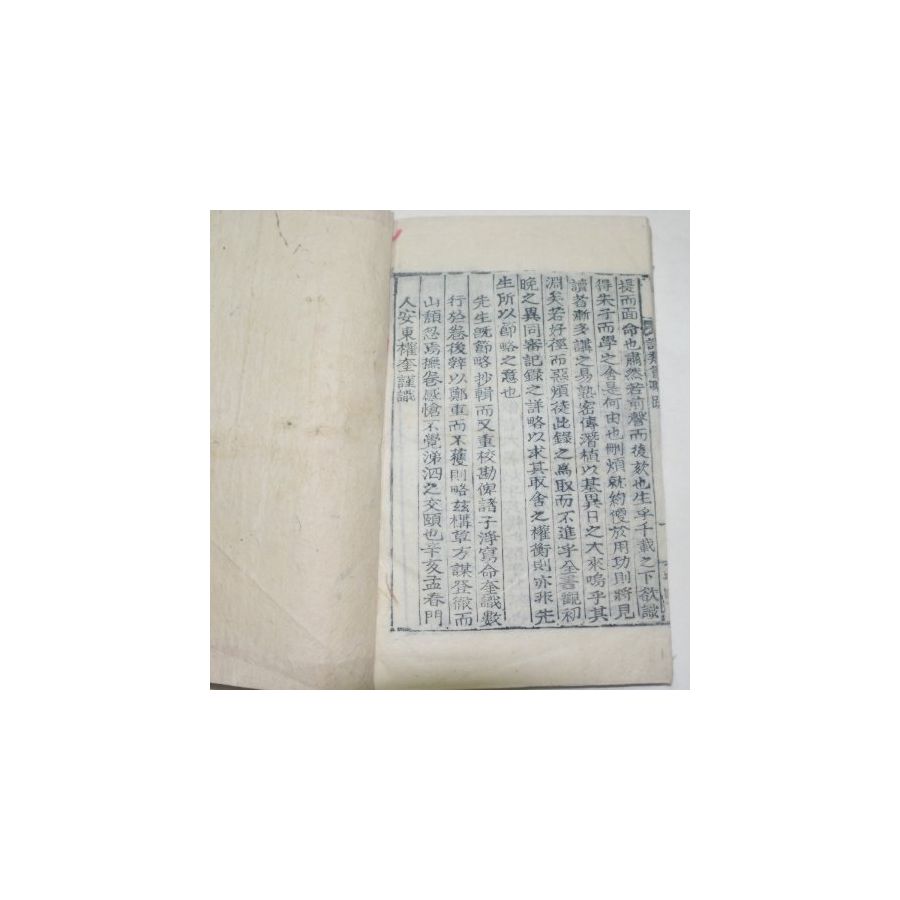 提而面命也肅然若前聲而後欬也生乎千載之下欲識
得朱子而學之舍是何由也刪煩就約便於用功則將見
讀者漸多講之易熟密傳潛植以基異日之大來嗚乎其
淵矣若好徑而惡煩徒此錄之爲取而不進乎全書觀初
晩之異同審記錄之詳略以求其取舍之權衡則亦非先
生所以節略之意也
先生旣節略抄輯而又重校勘俾諸子淨寫命奎識數
行於卷後辤以鄭重而不獲則略玆構草方謀登徹而
山頹忽焉撫卷感愴不覺涕泗之交頤也辛亥孟春門
人安東權奎謹識